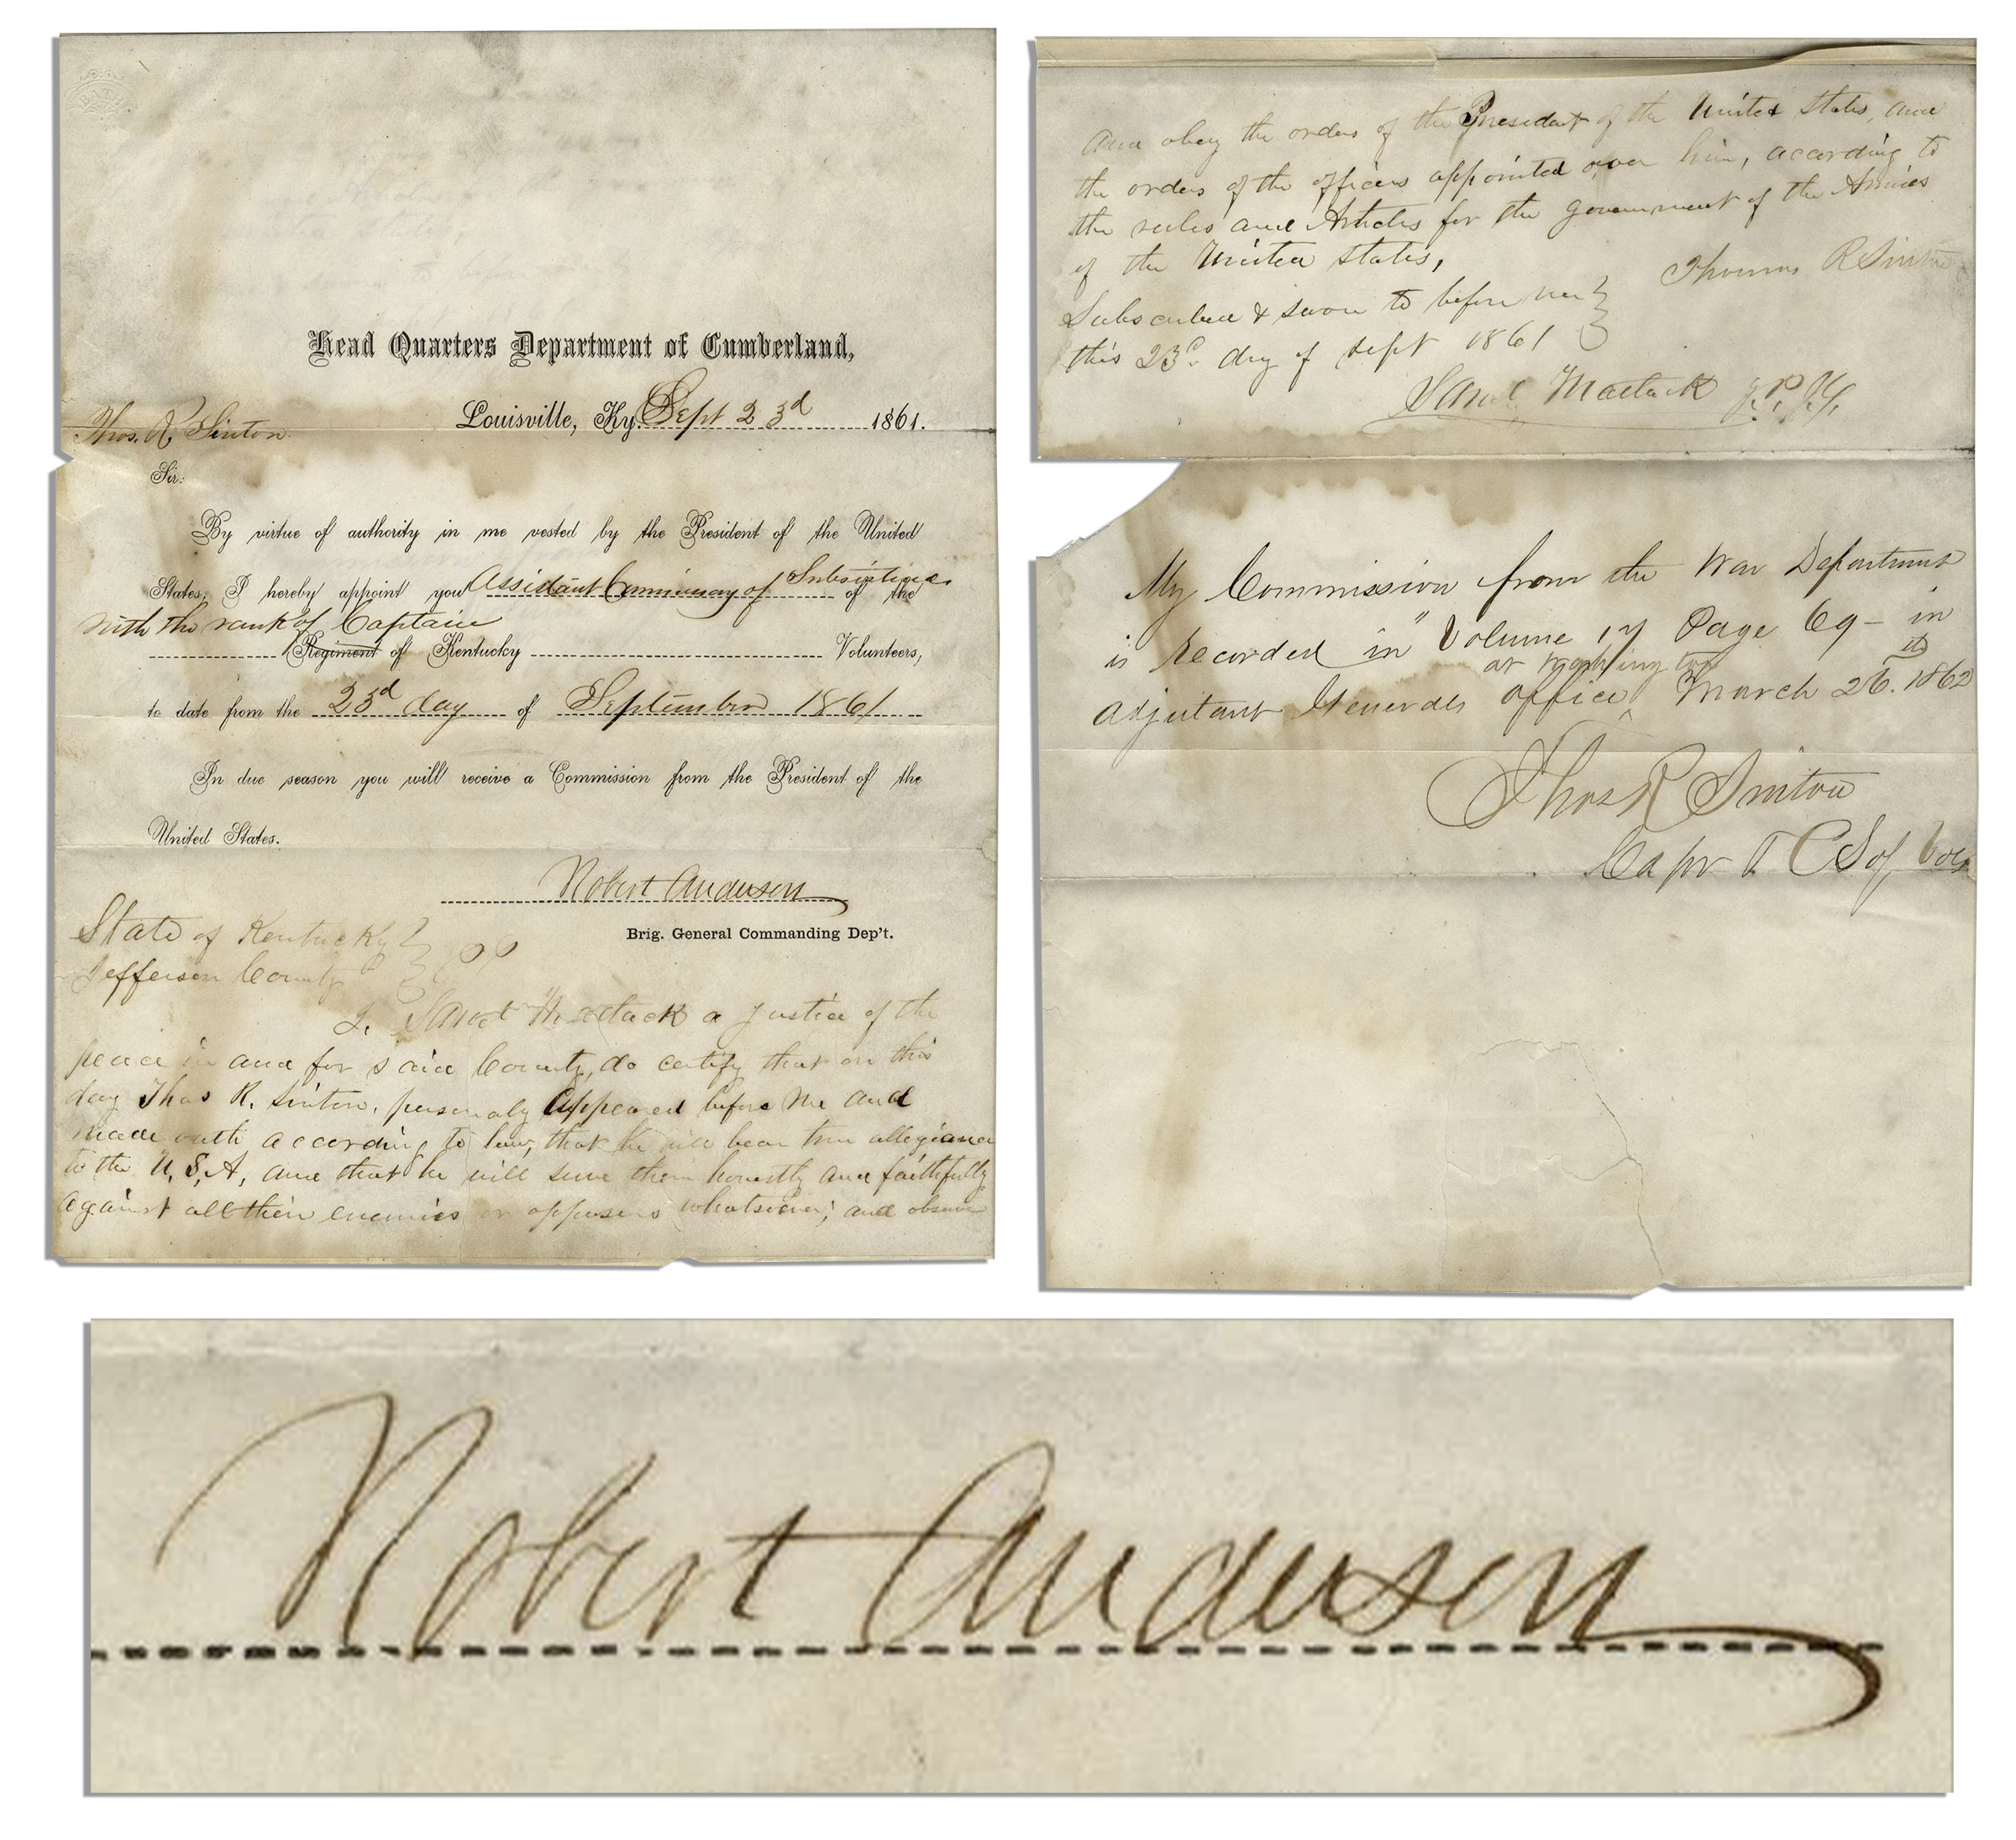 Head Quarters Department of Cumberland,
Louisville, Ky. Sept 23d 1861.
Thos. R. Sinton
Sir:
By virtue of authority in me vested by the President of the United
States, I hereby appoint you Assistant Commissary of Subsistence of the
with the rank of Captain
Regiment of Kentucky Volunteers,
to date from the 23d day of September 1861
In due season you will receive a Commission from the President of the
United States.
Robert Anderson
Brig. General Commanding Dep't.
State of Kentucky
Jefferson County
I, Saml Matlack a Justice of the
peace in and for said County, do certify that on this
day Thos R. Sinton, personaly appeared before me and
made outh according to law, that he will bear true allegiance
to the U,S,A, and that he will serve them honestly and faithfully
against all their enemies or opposers whatsoever; and observe
and obey the orders of the President of the United States, and
the orders of the officers appointed over him, according to
the rules and Articles for the government of the Armies
of the United States,
Thomas R Sinton
Subscribed & sworn to before me
this 23d day of Sept 1861
Saml Matlack J.P.J.C.
My Commission from the War Department
is Recorded in Volume 17 Page 69 - in
at Washington
Adjutant Generals office March 26th 1862
Thos R Sinton
Capt & CS of Vols
Robert Anderson